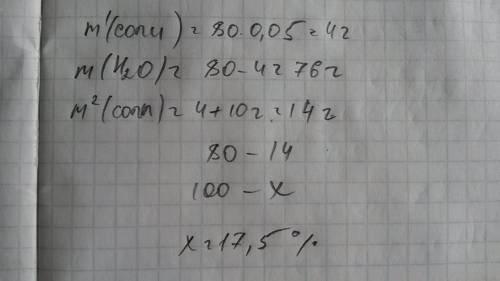 m¹(соли) = 80·0,05 = 4г
m(H₂O) = 80-4 = 76г
m²(соли) = 4+10г = 14г
80 - 14
100 - x
x = 17,5 %